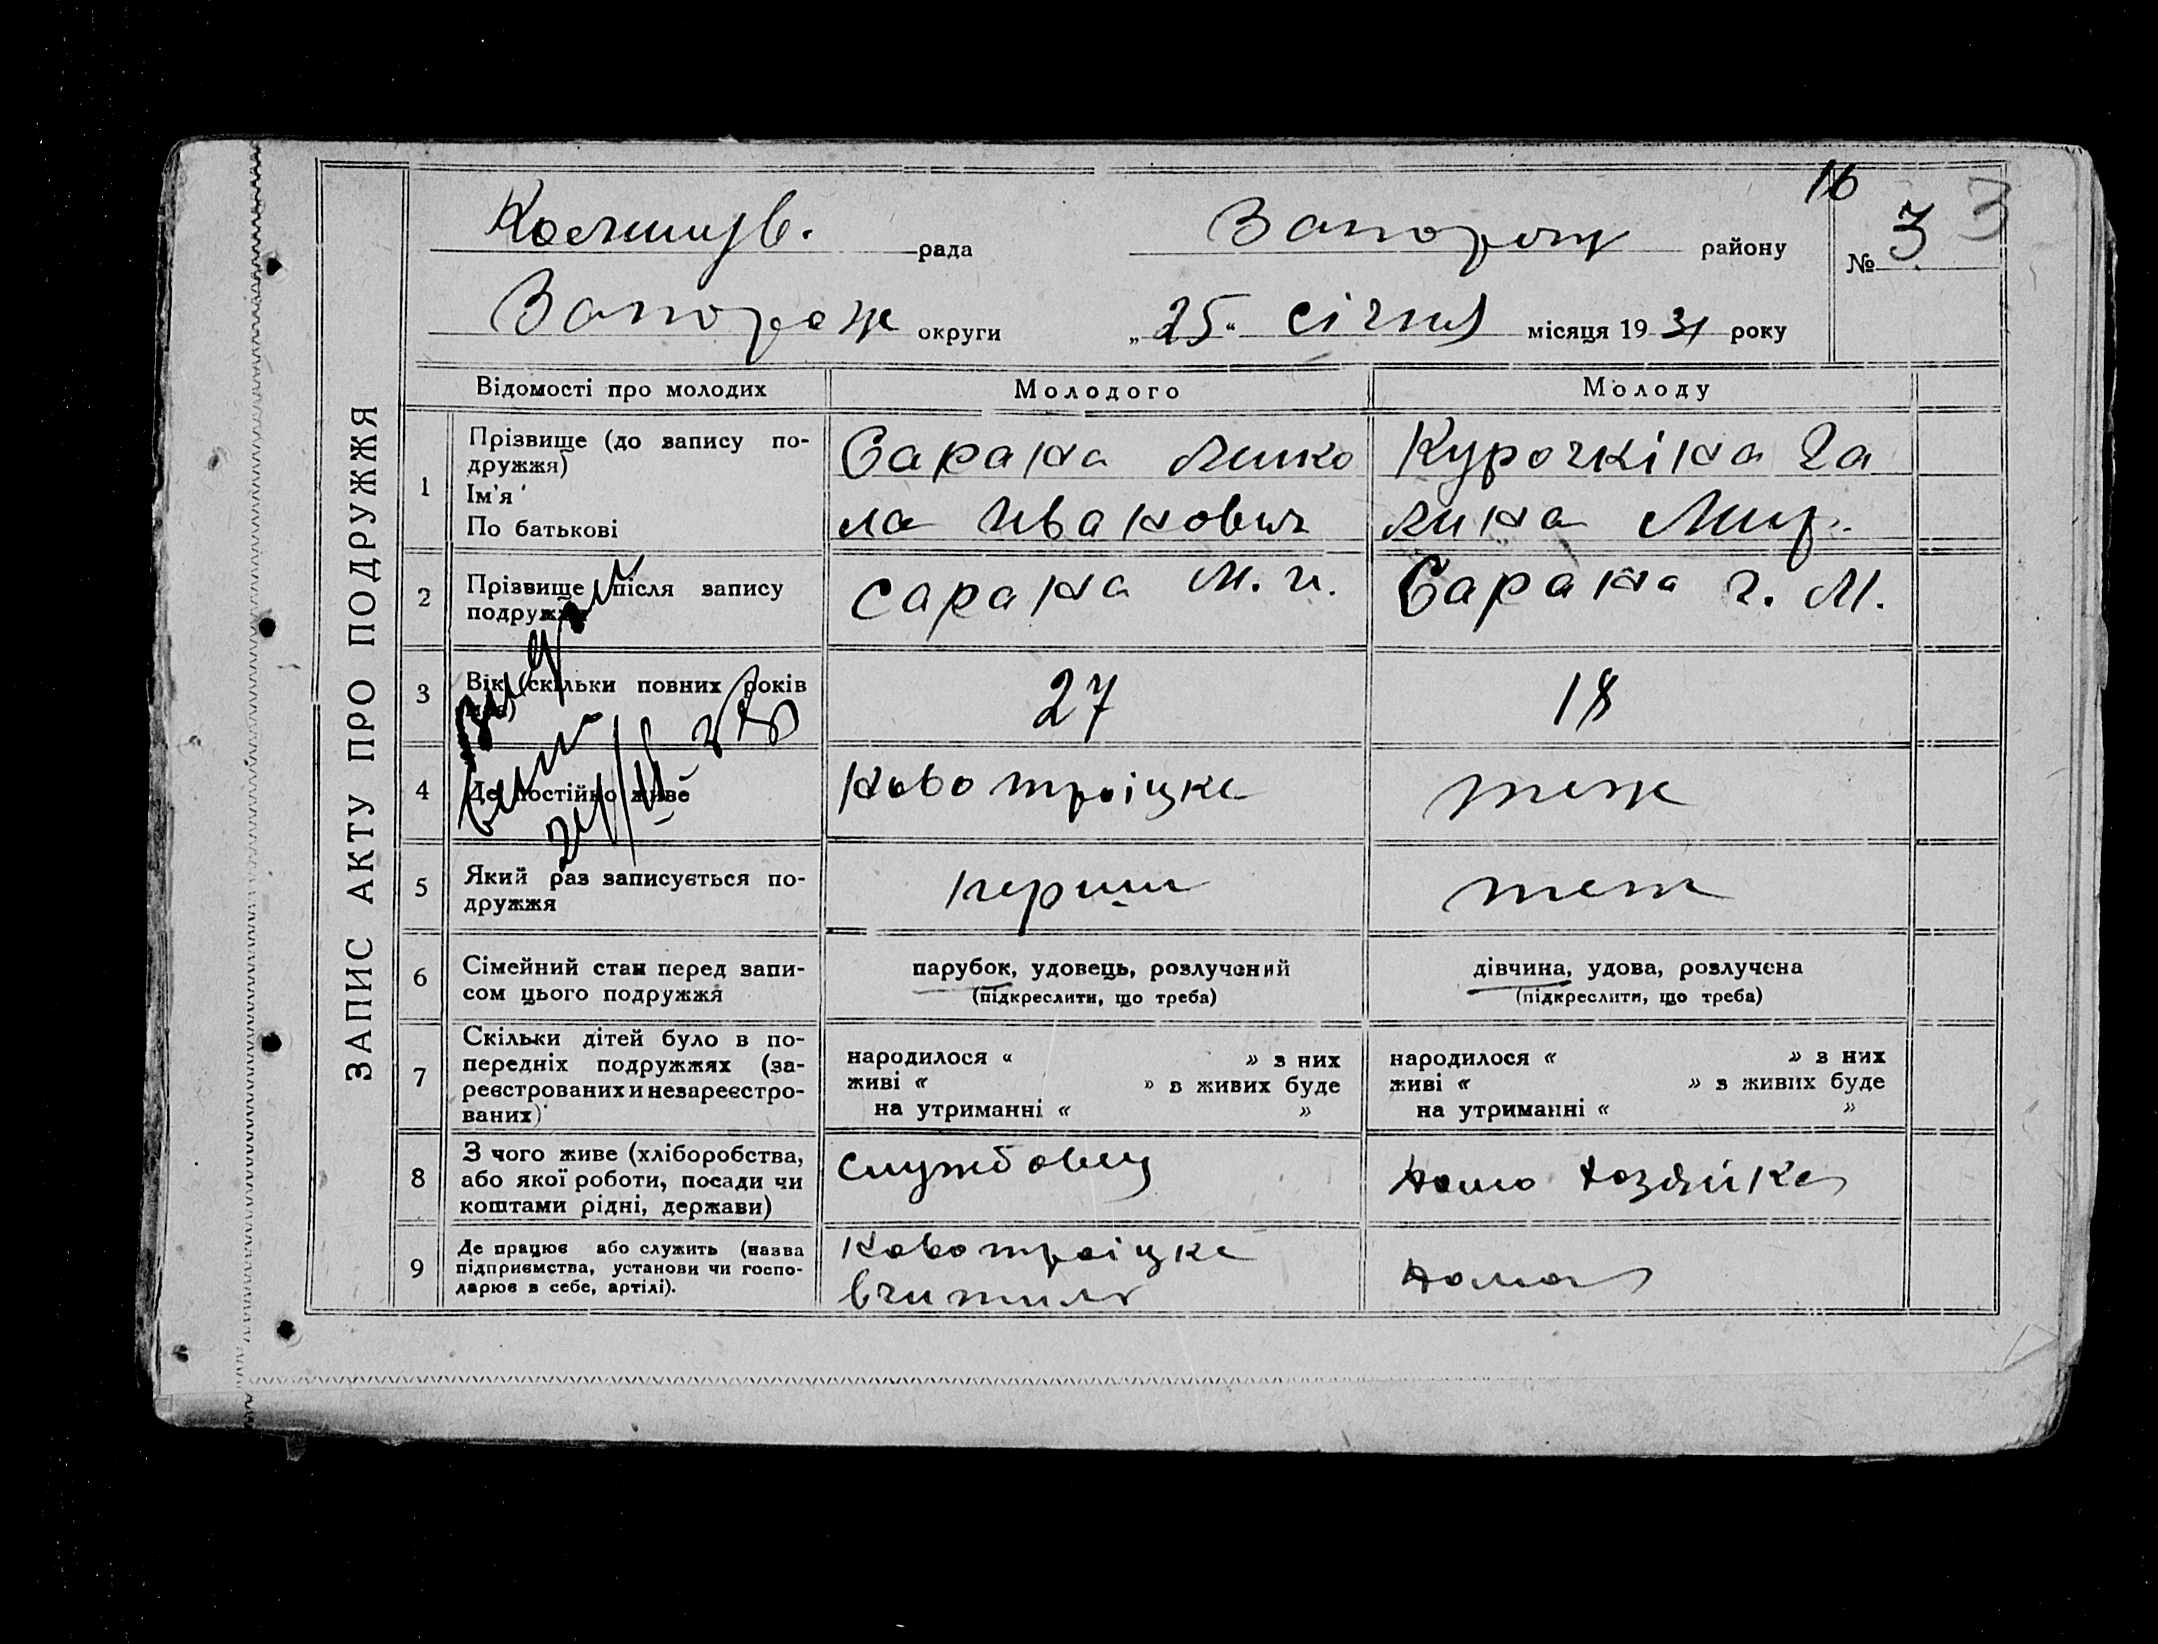 ЗАПИС АКТУ ПРО ПОДРУЖЖЯ
16
рада
Запорож району
№ 3 3
Запорож округи
„25“ січня місяця 1931 року
Відомості про молодих
Молодого
Молоду
1
Прізвище (до запису по-
дружжя)
Ім'я
По батькові
Сарана Мико
ла Иванович
Курочкіна Га
лина Мир.
2
Прізвище після запису
подружжя
Сарана М. И.
Сарана Г. М.
3
Вік (скільки повних років
має)
27
18
4
Де постійно живе
Новотроіцке
теж
5
Який раз записується по-
дружжя
перший
теж
6
Сімейний стан перед запи-
сом цього подружжя
парубок, удовець, розлучений
(підкреслити, що треба)
дівчина, удова, розлучена
(підкреслити, що треба)
7
Скільки дітей було в по-
передніх подружжях (за-
реєстрованих и незареєстро-
ваних)
народилося « » з них
живі « » в живих буде
на утриманні « »
народилося « » з них
живі « » з живих буде
на утриманні « »
8
З чого живе (хліборобства,
або якої роботи, посади чи
коштами рідні, держави)
службовец
домо хозяйка
9
Де працює або служить (назва
підприємства, установи чи госпо-
дарює в себе, артілі).
Новотроіцке
вчитиль
дома